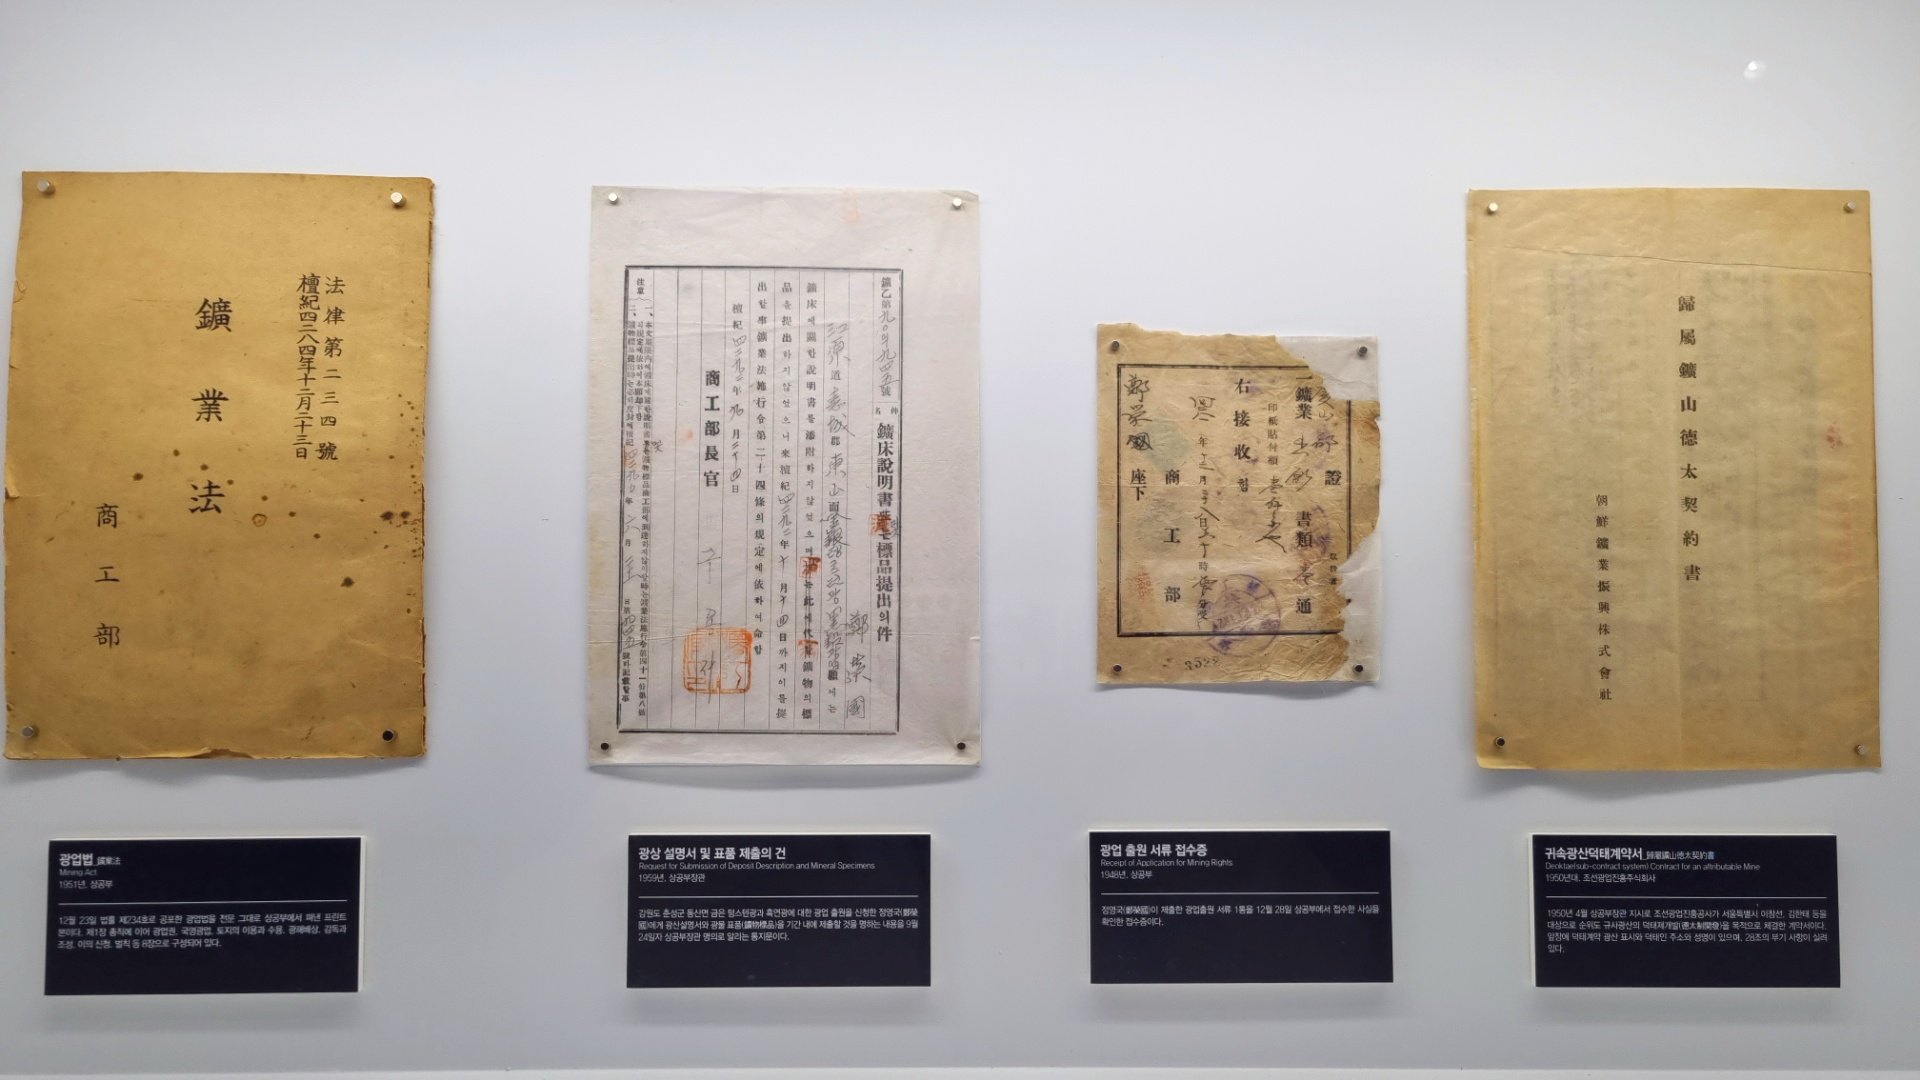 法律第二三四號
檀紀四二八四年十二月二十三日
鑛業法
商工部
鑛乙第九〇의九四五號
鑛床說明書및標品提出의件
鄭榮國
江原道春城郡東山面
鑛床에關한說明書를添附하지않었으며또는此에代할鑛物의標
品을提出하지않었으니來檀紀四二九二年十月十四日까지이를提
出할事鑛業法施行令第二十四條의規定에依하여命함
檀紀四二九二年九月二十四日
商工部長官
注意
證
鑛業出願書類壹通
印紙貼付額
右接收함
商工部
鄭榮國座下
3522
歸屬鑛山德太契約書
朝鮮鑛業振興株式會社
광업법_鑛業法
Mining Act
1951년, 상공부
12월 23일 법률 제234호로 공포한 광업법을 전문 그대로 상공부에서 펴낸 프린트
본이다. 제1장 총칙에 이어 광업권, 국영광업, 토지의 이용과 수용, 광해배상, 감독과
조성, 이의 신청, 벌칙 등 8장으로 구성되어 있다.
광상 설명서 및 표품 제출의 건
Request for Submission of Deposit Description and Mineral Specimens
1959년, 상공부장관
강원도 춘성군 동산면 금은 텅스텐광과 흑연광에 대한 광업 출원을 신청한 정영국(鄭榮
國)에게 광산설명서와 광물 표품(鑛物標品)을 기간 내에 제출할 것을 명하는 내용을 9월
24일자 상공부장관 명의로 알리는 통지문이다.
광업 출원 서류 접수증
Receipt of Application for Mining Rights
1948년, 상공부
정영국(鄭榮國)이 제출한 광업출원 서류 1통을 12월 28일 상공부에서 접수한 사실을
확인한 접수증이다.
귀속광산덕태계약서_歸屬鑛山德太契約書
Deoktae(sub-contract system) Contract for an attributable Mine
1950년대, 조선광업진흥주식회사
1950년 4월 상공부장관 지시로 조선광업진흥공사가 서울특별시 이창선, 김한태 등을
대상으로 순위도 규사광산의 덕태제개발(德太制開發)을 목적으로 체결한 계약서이다.
앞장에 덕태계약 광산 표시와 덕태인 주소와 성명이 있으며, 28조의 부기 사항이 실려
있다.